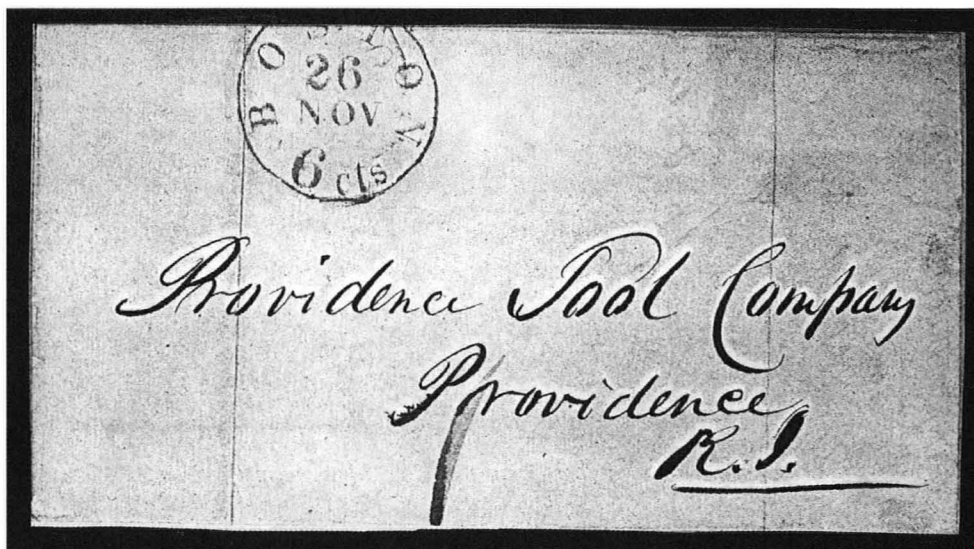 BOSTON
26
NOV
6 cts
Providence Tool Company
Providence
R.I.